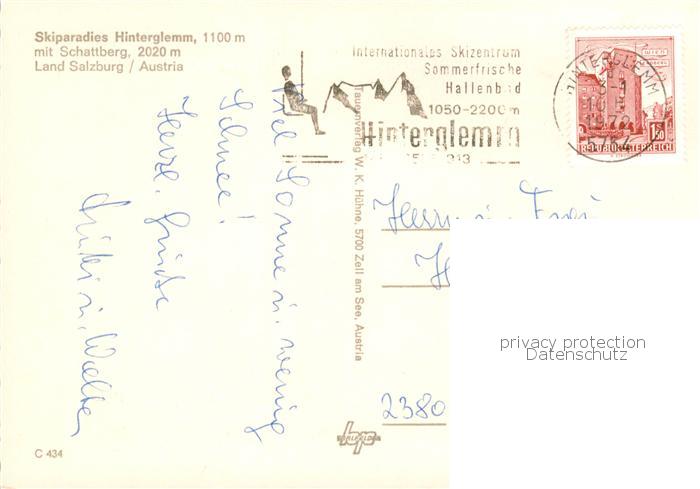 Skiparadies Hinterglemm, 1100 m
mit Schattberg, 2020 m
Land Salzburg / Austria
Internationales Skizentrum
Sommerfrische
Hallenbad
1050-2200m
Hinterglemm
HINTERGLEMM
1972
5754
WIEN
1.50
REPUBLIK ÖSTERREICH
Viel Sonne u. wenig
Schnee!
Herzl. Grüße
u. Walter
Tauernverlag W. K. Hühne, 5700 Zell am See, Austria
Herrn u. Frau
2380
privacy protection
Datenschutz
C 434